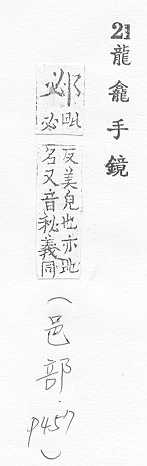 21 龍龕手鏡
邲 毗必反美皃也亦地名又音秘義同 (邑部.p457)